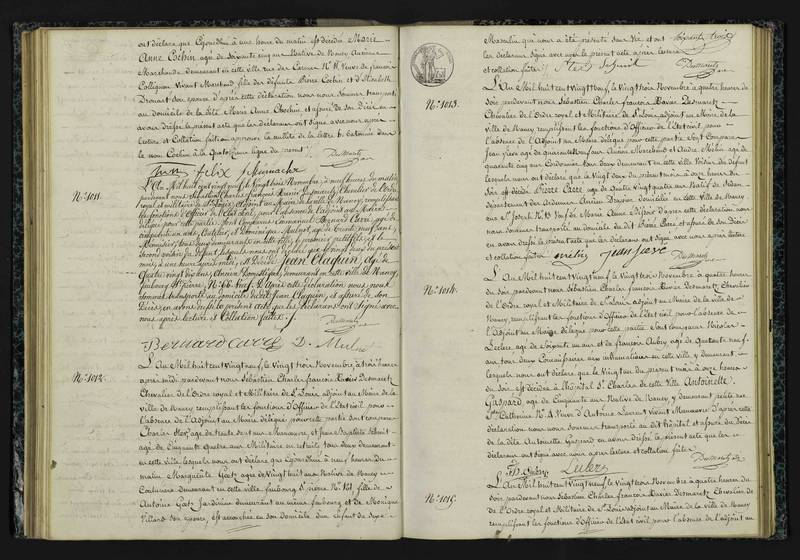 ont déclaré que aujourd'hui à une heure du matin est décédée Marie
Anne Cochin, agée de soixante cinq ans Native de Nancy Ancienne
Marchande demeurant en cette ville rue des Carmes N° Veuve de francois
Collignon Vivant Marchand fille des défunts Pierre Cochin et d'Elisabeth
Drouart son épouse d'après cette déclaration nous nous sommes transporté
au domicile de la dite Marie Anne Cochin et assuré de son Décès en
avons dressé le présent acte que les déclarants ont signé avec nous après
lecture et Collation faites approuvé la nullité de la lettre
le nom Cochin à la quatorzieme ligne du présent
Desmaretz
felix Schumacher
N°. 1011.
L'An Mil huit cent vingt neuf, le vingt trois Novembre, à neuf heures du matin,
pardevant nous Sébastien Charles François Xavier Desmaretz Chevalier de l'Ordre
royal et militaire de St. Louis, Adjoint au Maire de la ville de Nancy, remplissant
les fonctions d'Officier de l'Etat civil, pour l'absence de l'Adjoint au Maire
délégué pour cette partie, sont Comparus Emmanuel Bernard Carré, agé de
cinquante un ans, et Dominique agé de trente neuf ans,
Menuisier, tous deux demeurants en cette ville, le premier petit fils et le
second voisin du défunt lesquels nous ont déclaré que le vingt deux du présent
mois, à une heure après midi, est Décédé Jean Claquin, agé de
Quatre vingt dix ans, Ancien Domestique, demeurant en cette ville de Nancy,
faubourg St Pierre, N° 66. Veuf. D'après cette déclaration nous nous
sommes transporté au domicile du dit Jean Claquin, et assuré de son
Décès, en avons dressé le présent acte que les Déclarants ont Signé avec
nous après lecture et Collation faites.
Desmaretz
Bernard Carré D. Mulnot
N°. 1012.
L'An Mil huit cent vingt neuf, le vingt trois Novembre à trois heures
après midi pardevant nous Sébastien Charles francois Xavier Desmaretz
Chevalier de l'Ordre royal et Militaire de St Louis adjoint au Maire de la
ville de Nancy remplissant les fonctions d'Officier de l'Etat civil pour
l'absence de l'Adjoint au Maire délégué pour cette partie sont comparus
Charles agé de trente sept ans Manoeuvre, et Jean Baptiste Schmit
agé de Cinquante quatre ans Militaire en retraite tous deux demeurant
en cette ville, lesquels nous ont déclaré que aujourd'hui à neuf heures du
matin Marguerite Gœtz agée de Vingt huit ans Native de Nancy
Couturiere demeurant en cette ville faubourg St pierre N° 121 fille de
Antoine Gœtz Jardinier demeurant au même faubourg et de Monique
Villard son épouse, est accouchée en son domicile d'un Enfant du sexe
Masculin qui nous a été présenté sans Vie et ont
les déclarants signé avec nous le présent acte après lecture
et collation faites
Desmaretz
N°. 1013.
L'An Mil huit cent vingt neuf, le vingt trois Novembre à quatre heures du
soir pardevant nous Sébastien Charles francois Xavier Desmaretz
Chevalier de l'Ordre royal et Militaire de St Louis adjoint au Maire de la
ville de Nancy remplissant les fonctions d'Officier de l'Etat civil pour
l'absence de l'Adjoint au Maire délégué pour cette partie Sont Comparus
Jean agé de quarante neuf ans Ancien Marchand et André agé de
quarante cinq ans Cordonnier tous deux demeurant en cette ville Voisins du défunt
lesquels nous ont déclaré que le Vingt deux du présent mois à onze heures du
soir est décédé Pierre Carré agé de Quatre vingt quatre ans Natif de Sedan
département des Ardennes Ancien Drapier domicilié en cette ville de Nancy
rue St Joseph N° Veuf de Marie Anne d'après cette déclaration nous
nous sommes transporté au domicile du dit Pierre Carré et assuré de son Décès
en avons dressé le présent acte que les déclarants ont signé avec nous après lecture
et collation faites
Desmaretz
N°. 1014.
L'An Mil huit cent Vingt neuf, le vingt trois Novembre à quatre heures
du soir pardevant nous Sébastien Charles francois Xavier Desmaretz Chevalier
de l'Ordre royal et Militaire de St Louis adjoint au Maire de la ville de
Nancy remplissant les fonctions d'Officier de l'Etat civil pour l'absence de
l'Adjoint au Maire délégué pour cette partie Sont comparus Nicolas
Leclerc agé de soixante un ans et de francois Aubry agé de Quarante neuf
ans tous deux Commissaires aux inhumations en cette ville y demeurant
lesquels nous ont déclaré que le Vingt un du présent mois à onze heures
du soir est décédée à l'hôpital St Charles de cette Ville Antoinette
Gaspard, agée de Cinquante ans Native de Nancy y demeurant petite rue
Ste Catherine N° 4 Veuve d'Antoine Laurent vivant Manoeuvre d'après cette
déclaration nous nous sommes transporté au dit hôpital et assuré du Décès
de la dite Antoinette Gaspard en avons dressé le présent acte que les
déclarants ont signé avec nous après lecture et collation faites
Desmaretz
fs Aubry Leclerc
N°. 1015.
L'An Mil huit cent Vingt neuf, le vingt trois Novembre à quatre heures du
soir, pardevant nous Sébastien Charles francois Xavier Desmaretz Chevalier de
de l'Ordre royal et Militaire de St Louis adjoint au Maire de la ville de Nancy
remplissant les fonctions d'Officier de l'Etat civil pour l'absence de l'adjoint au